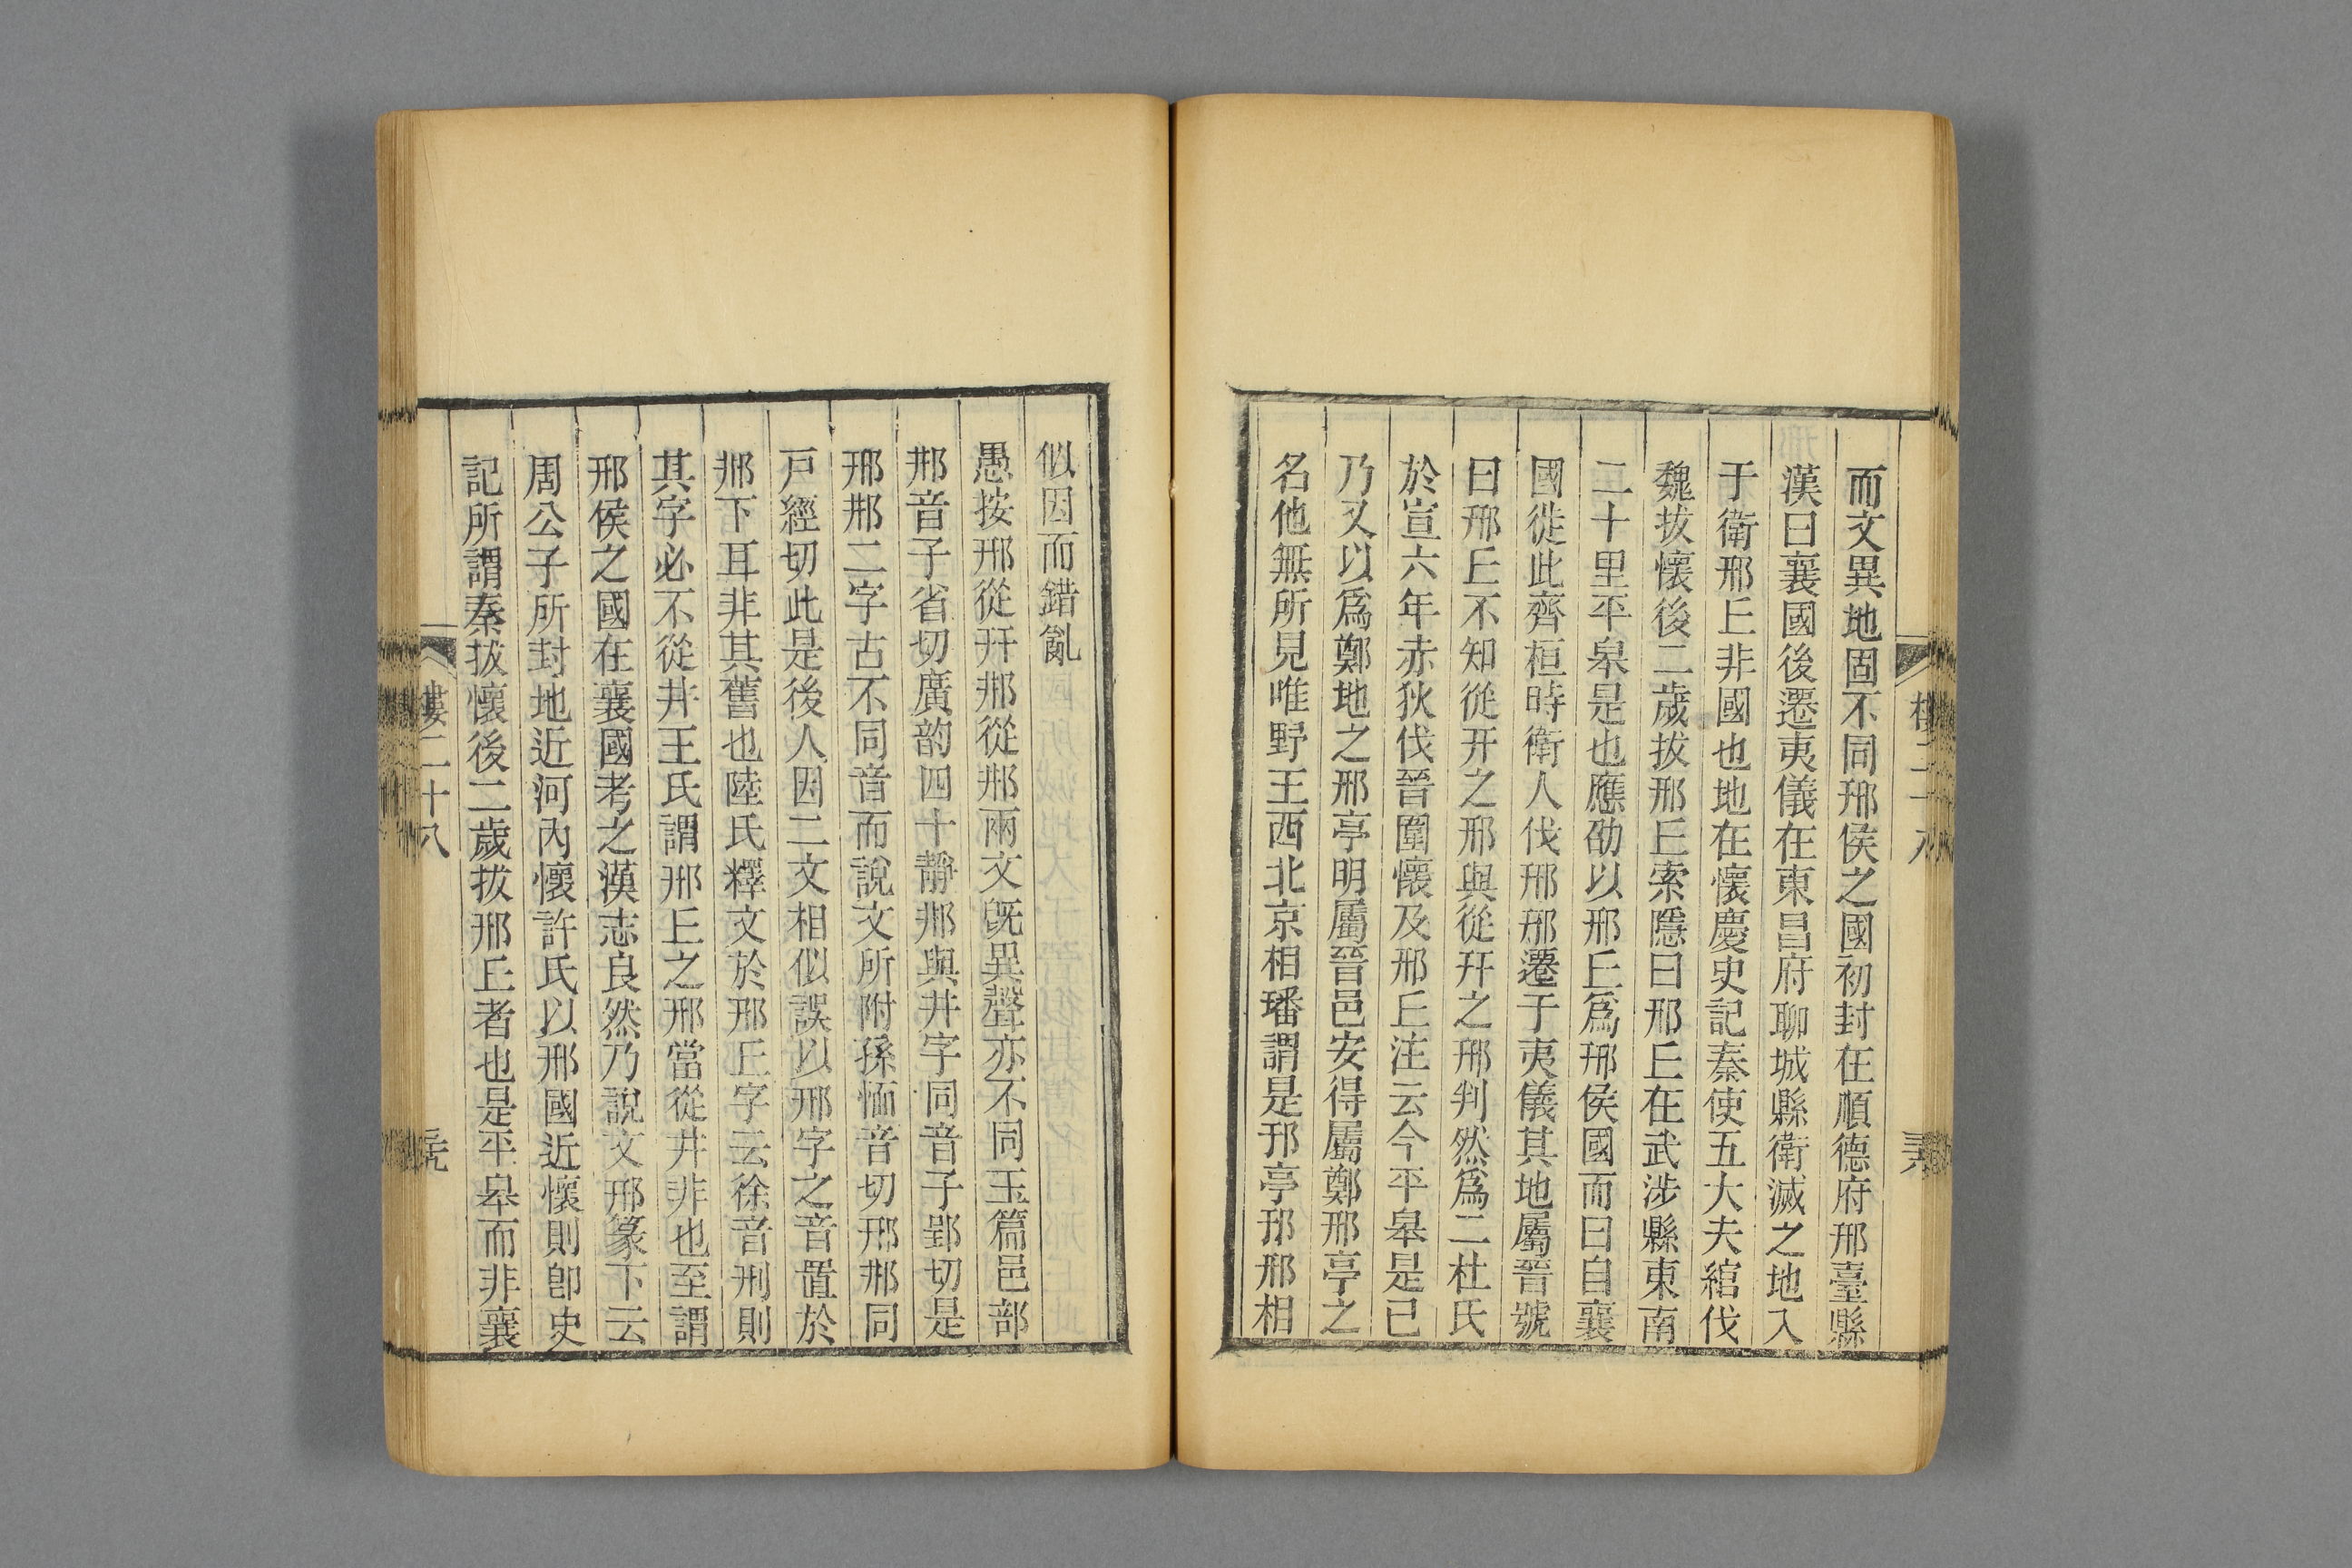 而文異地固不同邢侯之國初封在順德府邢臺縣
漢曰襄國後遷夷儀在東昌府聊城縣衛滅之地入
于衛邢丘非國也地在懷慶史記秦使五大夫綰伐
魏拔懷後二歲拔邢丘索隱曰邢丘在武涉縣東南
二十里平皋是也應劭以邢丘爲邢侯國而曰自襄
國徙此齊桓時衛人伐邢邢遷于夷儀其地屬晉號
曰邢丘不知從开之邢與從幵之邢判然爲二杜氏
於宣六年赤狄伐晉圍懷及邢丘注云今平皋是已
乃又以爲鄭地之邢亭明屬晉邑安得屬鄭邢亭之
名他無所見唯野王西北京相璠謂是邘亭邘邢相
似因而錯亂
愚按邢從幵邢從井兩文旣異聲亦不同玉篇邑部
邢音子省切廣韵四十靜邢與井字同音子郢切是
邢邢二字古不同音而說文所附孫愐音切邢邢同
戶經切此是後人因二文相似誤以邢字之音置於
邢下耳非其舊也陸氏釋文於邢丘字云徐音刑則
其字必不從井王氏謂邢丘之邢當從井非也至謂
邢侯之國在襄國考之漢志良然乃說文邢篆下云
周公子所封地近河內懷許氏以邢國近懷則卽史
記所謂秦拔懷後二歲拔邢丘者也是平皋而非襄
樓二十八